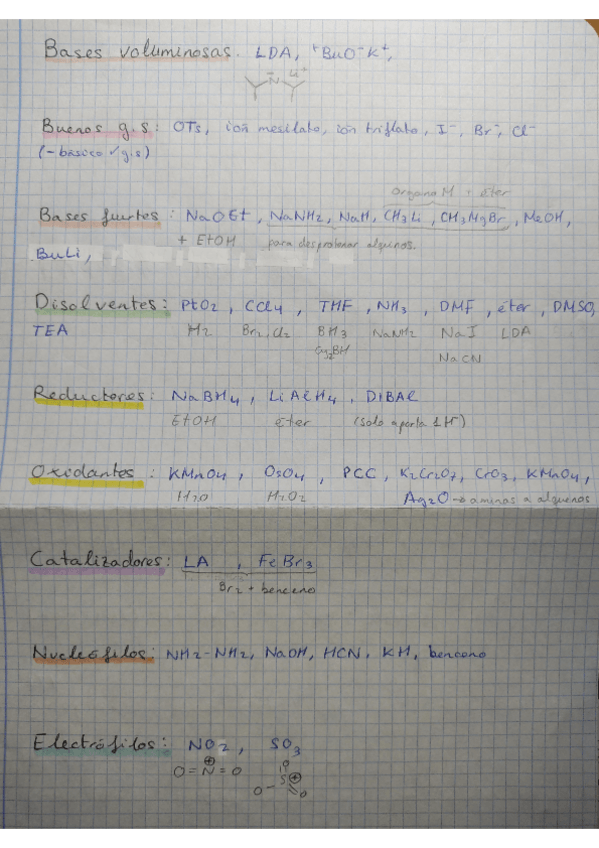 Bases voluminosas. LDA, ⁺BuO⁻K⁺,
N Li⁺
Buenos g.s: OTs, ión mesilato, ión triflato, I⁻, Br⁻, Cl⁻
(- básico ✓ g.s)
Organo M + éter
Bases fuertes: NaOEt, NaNH2, NaH, CH3Li, CH3MgBr, MeOH,
+ EtOH para desprotonar alquinos.
BuLi,
Disolventes: PtO2, CCl4, THF, NH3, DMF, éter, DMSO,
TEA H2 Br2, Cl2 BH3 NaNH2 NaI LDA
Cy2BH NaCN
Reductores: NaBH4, LiAlH4, DIBAL
EtOH éter (solo aporta 1H⁻)
Oxidantes: KMnO4, OsO4, PCC, K2Cr2O7, CrO3, KMnO4,
H2O H2O2 Ag2O → aminas a alquenos
Catalizadores: LA, FeBr3
Br2 + benceno
Nucleófilos: NH2-NH2, NaOH, HCN, KH, benceno
Electrófilos: NO2, SO3
O=N=O ⊕
O S ⊕ O O